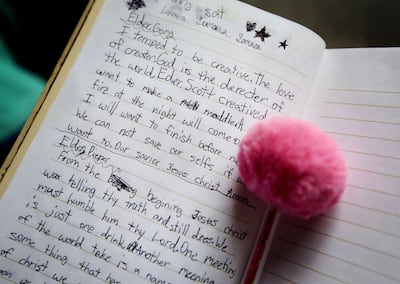 sat
Elder.Gong
I temped to be creative. The love
of creator.God, is the derecter of
the world. Elder.Scott creatived
want to make a maddle
fire at the night will come
I will want to finish before n
We can not save our selfs. if w
want to. Our savior Jesus christ
Elder.
From the begining Jesus christ
was telling thy truth and still dose. We
must humble him thy Lord. One meeting
is just one drink. Another meening
of the world take is a name
some thing that has
of christ we